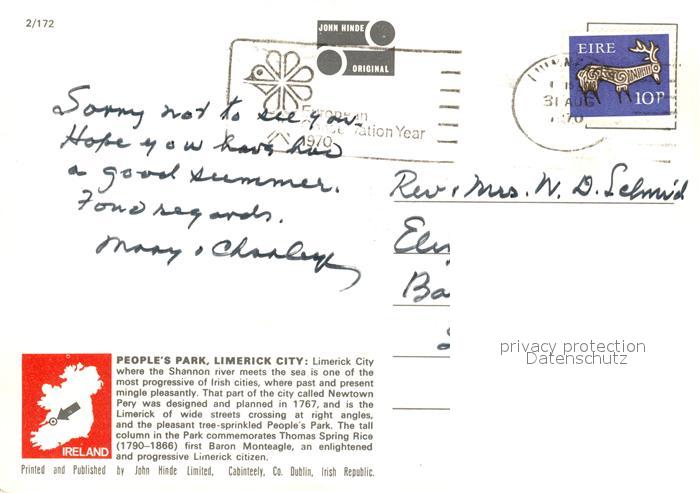 2/172
JOHN HINDE
ORIGINAL
EIRE
10P
31 AUG
1970
European
Conservation Year
1970
Sorry not to see you.
Hope you have had
a good summer.
Fond regards.
Mary & Charley
Rev. & Mrs. W. D. Schmid
Ba
privacy protection
Datenschutz
PEOPLE'S PARK, LIMERICK CITY: Limerick City
where the Shannon river meets the sea is one of the
most progressive of Irish cities, where past and present
mingle pleasantly. That part of the city called Newtown
Pery was designed and planned in 1767, and is the
Limerick of wide streets crossing at right angles,
and the pleasant tree-sprinkled People's Park. The tall
column in the Park commemorates Thomas Spring Rice
(1790–1866) first Baron Monteagle, an enlightened
and progressive Limerick citizen.
IRELAND
Printed and Published by John Hinde Limited, Cabinteely, Co. Dublin, Irish Republic.